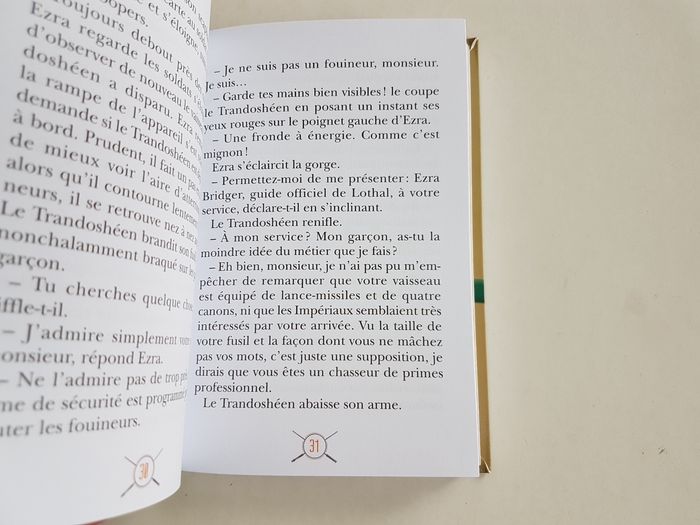 oopers.
arte au so
et s'éloign
oujours debout près de
Ezra regarde les soldats s'él
d'observer de nouveau le vaiss
doshéen a disparu. Ezra
la rampe de l'appareil s'est
demande si le Trandoshéen est
à bord. Prudent, il fait un pas
de mieux voir l'aire d'atterr
alors qu'il contourne lentement
neurs, il se retrouve nez à nez
Le Trandoshéen brandit son fu
nonchalamment braqué sur le
garçon.
– Tu cherches quelque chose
iffle-t-il.
– J'admire simplement votre
onsieur, répond Ezra.
– Ne l'admire pas de trop près
me de sécurité est programmé
uter les fouineurs.
30
– Je ne suis pas un fouineur, monsieur.
Je suis…
– Garde tes mains bien visibles ! le coupe
le Trandoshéen en posant un instant ses
yeux rouges sur le poignet gauche d'Ezra.
– Une fronde à énergie. Comme c'est
mignon !
Ezra s'éclaircit la gorge.
– Permettez-moi de me présenter : Ezra
Bridger, guide officiel de Lothal, à votre
service, déclare-t-il en s'inclinant.
Le Trandoshéen renifle.
– À mon service ? Mon garçon, as-tu la
moindre idée du métier que je fais ?
– Eh bien, monsieur, je n'ai pas pu m'em-
pêcher de remarquer que votre vaisseau
est équipé de lance-missiles et de quatre
canons, ni que les Impériaux semblaient très
intéressés par votre arrivée. Vu la taille de
votre fusil et la façon dont vous ne mâchez
pas vos mots, c'est juste une supposition, je
dirais que vous êtes un chasseur de primes
professionnel.
Le Trandoshéen abaisse son arme.
31